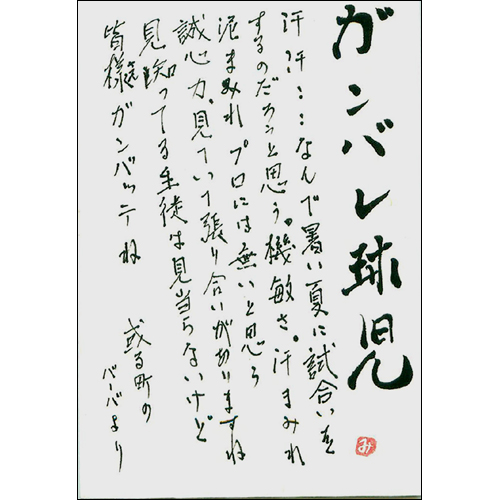 ガンバレ球児
汗汗:‥なんで暑い夏に試合いを
するのだろうと思う。機敏さ。汗まみれ
泥まみれ プロには無いと思う
誠心力。見ていて張り合いがありますね
見知ってる生徒は見当らないけど
皆様ガンバッテね
或る町の
バーバより
み